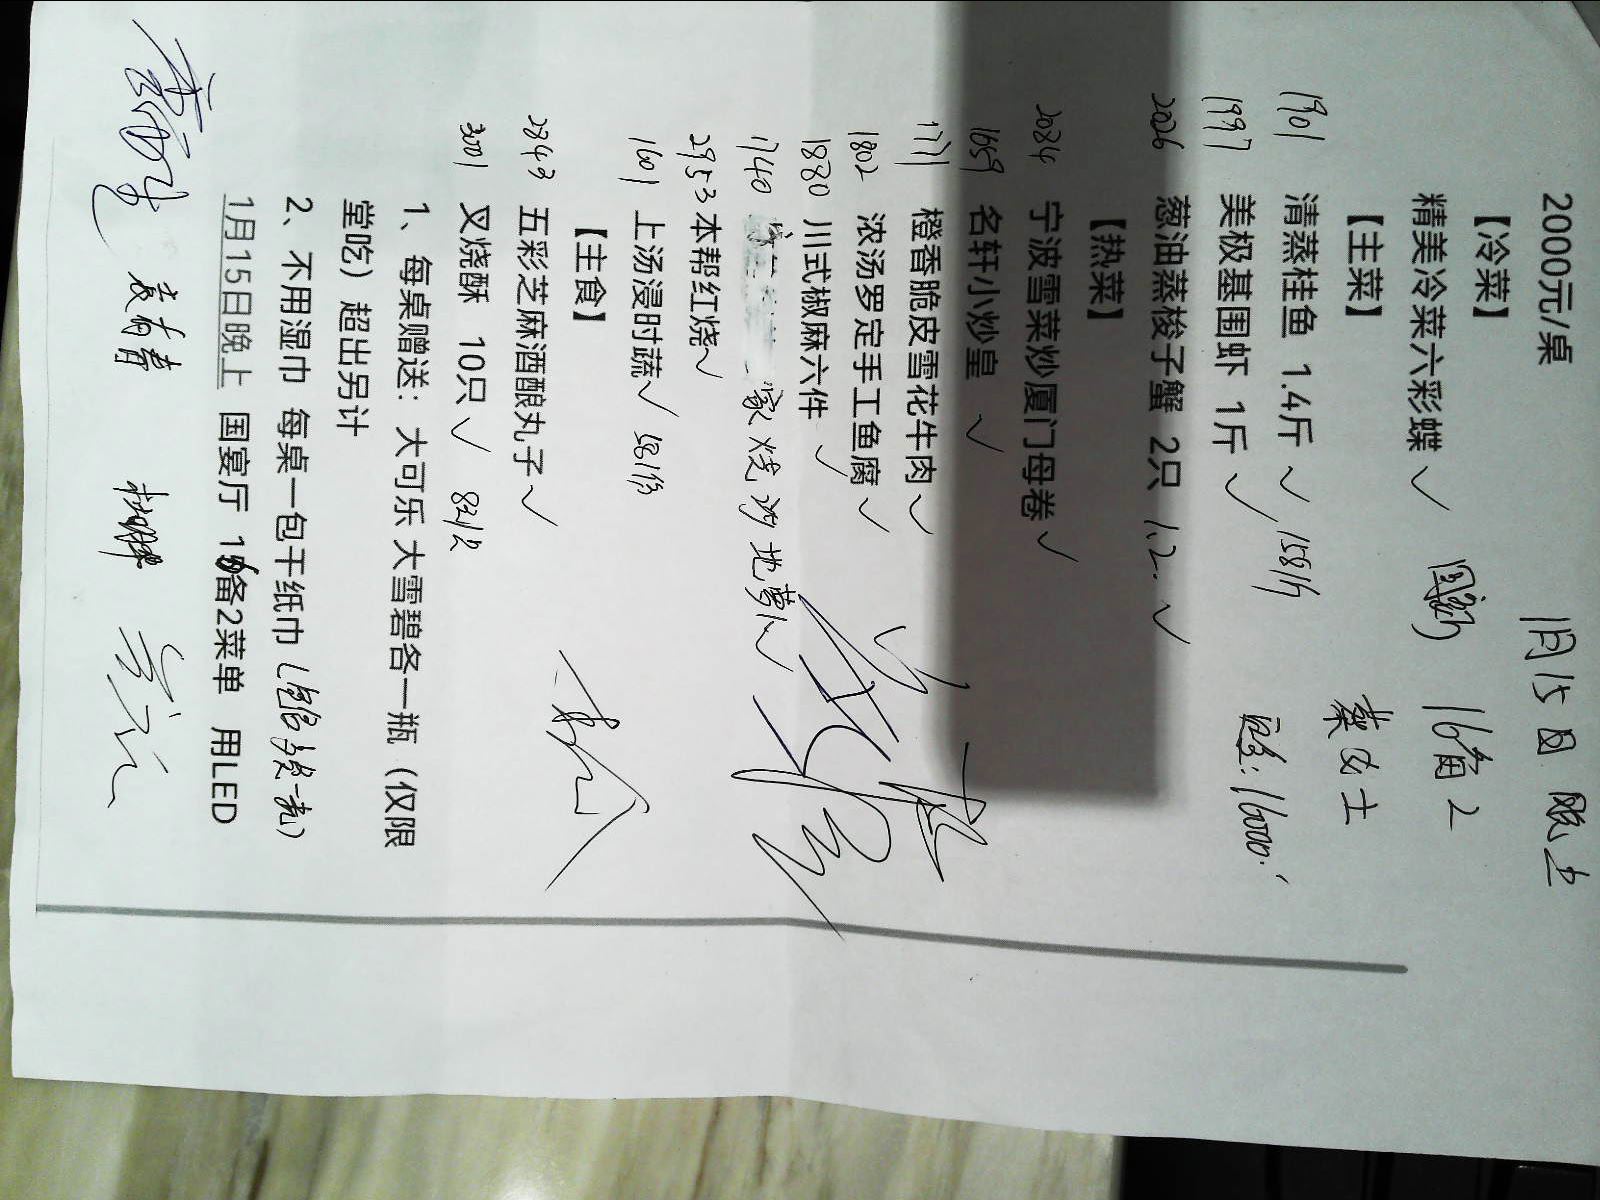 2000元/桌 1月15日 晚上
【冷菜】
精美冷菜六彩蝶 ✓ 国宴厅 16备2
【主菜】 蔡女士
1901 清蒸桂鱼 1.4斤 ✓ 158/斤
1997 美极基围虾 1斤 ✓ 16000
2026 葱油蒸梭子蟹 2只 1.2 ✓
【热菜】
2084 宁波雪菜炒厦门母卷 ✓
1659 名轩小炒皇 ✓
1771 橙香脆皮雪花牛肉 ✓
1802 浓汤罗定手工鱼腐 ✓
1880 川式椒麻六件 ✓
1740 烧汁地萝卜 ✓
2953 本帮红烧 ✓
1601 上汤浸时蔬 ✓ 58/份
【主食】
2843 五彩芝麻酒酿丸子 ✓
3001 叉烧酥 10只 ✓ 8元/只
1、每桌赠送：大可乐 大雪碧各一瓶（仅限
堂吃）超出另计
2、不用湿巾 每桌一包干纸巾
1月15日晚上 国宴厅 16备2菜单 用LED